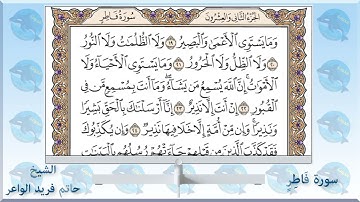 سُورَةُ فَاطِرٍ
الجُزءُ الثَّانِي وَالعِشرُونَ
وَمَا يَسْتَوِي ٱلْأَعْمَىٰ وَٱلْبَصِيرُ ١٩ وَلَا ٱلظُّلُمَٰتُ وَلَا ٱلنُّورُ
٢٠ وَلَا ٱلظِّلُّ وَلَا ٱلْحَرُورُ ٢١ وَمَا يَسْتَوِي ٱلْأَحْيَآءُ وَلَا
ٱلْأَمْوَٰتُ إِنَّ ٱللَّهَ يُسْمِعُ مَن يَشَآءُ وَمَآ أَنتَ بِمُسْمِعٍ مَّن فِي
ٱلْقُبُورِ ٢٢ إِنْ أَنتَ إِلَّا نَذِيرٌ ٢٣ إِنَّآ أَرْسَلْنَٰكَ بِٱلْحَقِّ بَشِيرًا
وَنَذِيرًا وَإِن مِّنْ أُمَّةٍ إِلَّا خَلَا فِيهَا نَذِيرٌ ٢٤ وَإِن يُكَذِّبُوكَ
فَقَدْ كَذَّبَ ٱلَّذِينَ مِن قَبْلِهِمْ جَآءَتْهُمْ رُسُلُهُم بِٱلْبَيِّنَٰتِ
سورة فَاطِرٍ
الشيخ
حاتم فريد الواعر